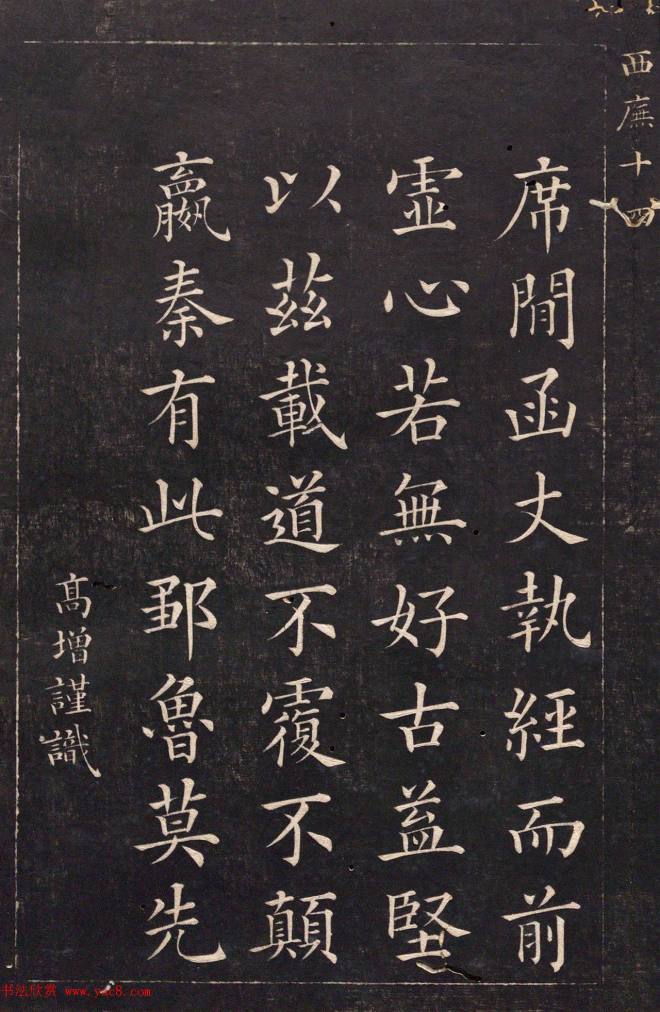 西廡十四
席間函丈執經而前
虛心若無好古益堅
以茲載道不覆不顛
嬴秦有此鄒魯莫先
高增謹識
书法欣赏 www.yac8.com